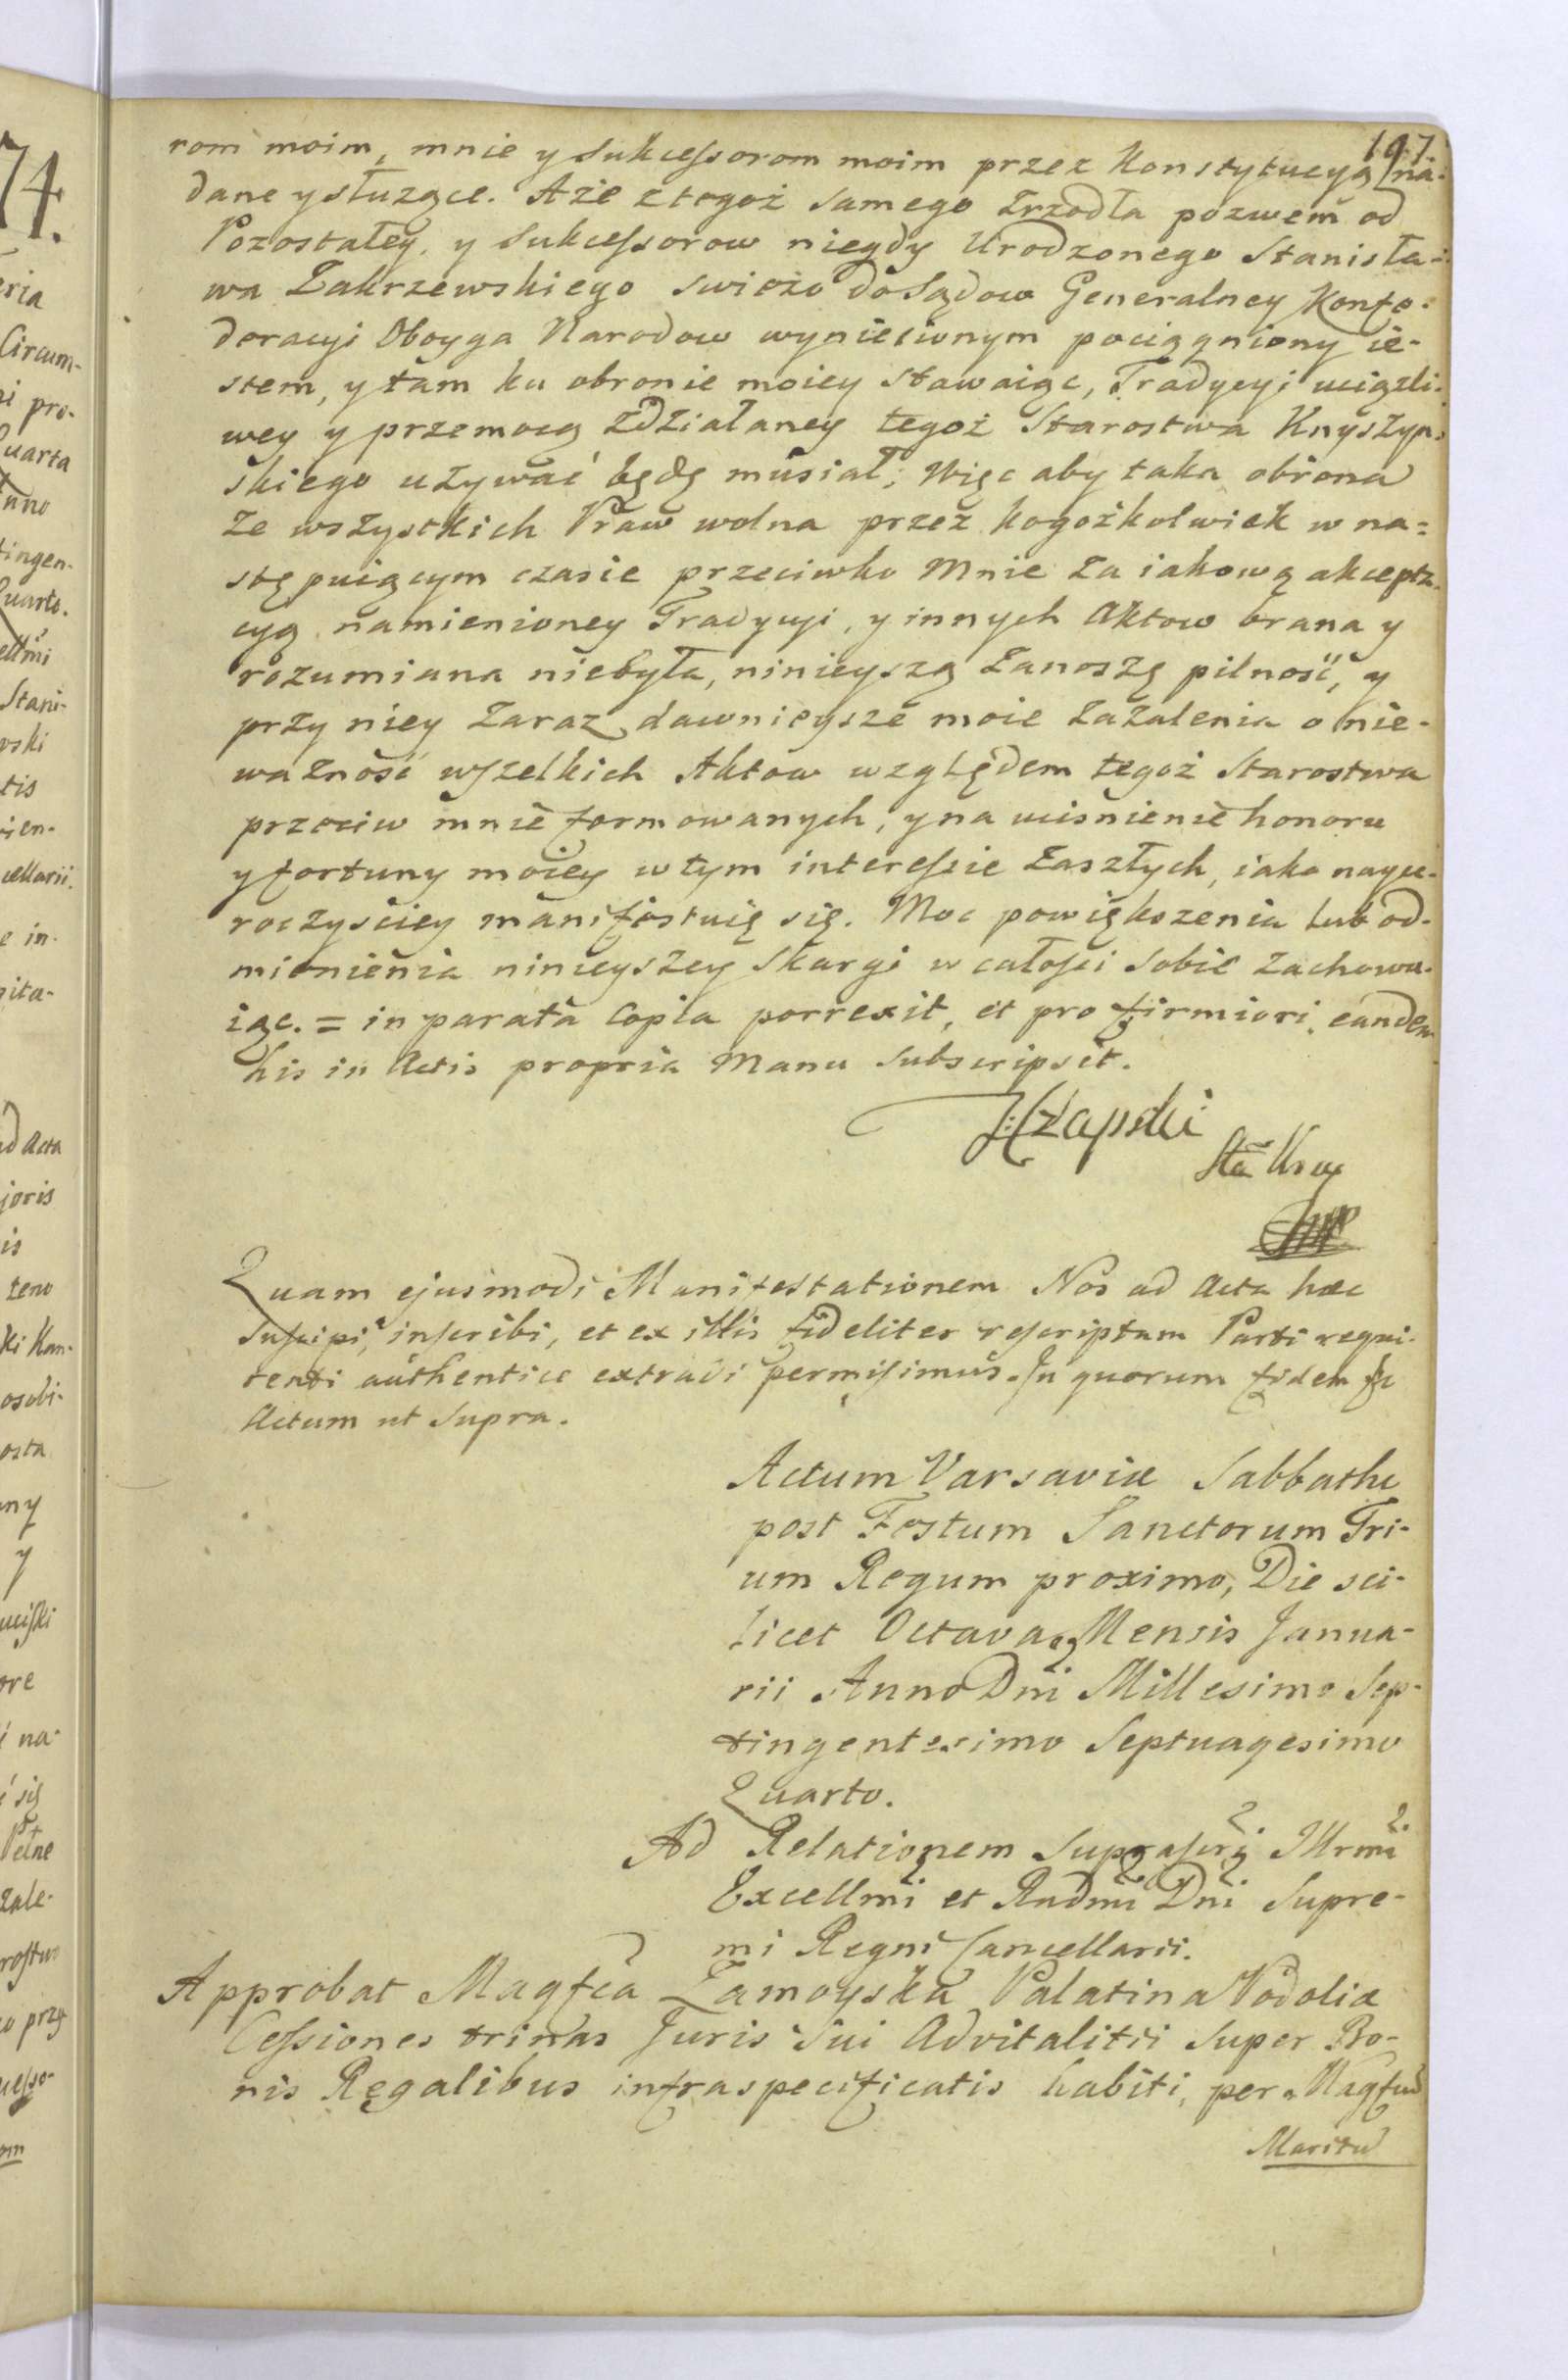 197.
rom moim, mnie y Sukcessorom moim przez Konstytucyą na-
dane y służące. A że z tegoż samego Zrzodła pozwem od
Pozostałey, y Sukcessorow niegdy Urodzonego Stanisła-
wa Zakrzewskiego swieżo do Sądow Generalney Konfe-
deracyi Oboyga Narodow wyniesionym pociągniony ie-
stem, y tam ku obronie moiey stawaiąc, Tradycyi uciązli-
wey y przemocą zdziałaney tegoż Starostwa Knyszyn-
skiego używać będę musiał; Więc aby taka obrona
ze wszystkich Praw wolna przez kogożkolwiek w na-
stępuiącym czasie przeciwko Mnie za iakową akcepta-
cyą namienioney Tradycyi, y innych Aktow brana y
rozumiana niebyła, ninieyszą zanoszę pilność, y
przy niey zaraz dawnieysze moie zażalenia o nie-
ważność wszelkich Aktow względem tegoż Starostwa
przeciw mnie formowanych, y na uciśnienie honoru
y fortuny moiey w tym interessie zaszłych, iako nayu-
roczyściey manifestuię się. Moc powiększenia lub od-
mienienia ninieyszey Skargi w całości sobie zachowu-
iąc. = in parata Copia porrexit, et pro firmiori eandem
his in Actis propria Manu subscripsit.
Czapski
Quam ejusmodi Manifestationem Nos ad Acta hæc
suscipi, inscribi, et ex illis fideliter rescriptam Parti requi-
renti authentice extradi permisimus. In quorum fidem
Actum ut Supra.
Actum Varsaviæ Sabbatho
post Festum Sanctorum Tri-
um Regum proximo, Die sci-
licet Octava Mensis Janua-
rii Anno Dni Millesimo Sep-
tingentesimo Septuagesimo
Quarto.
Ad Relationem suprascri Illrmi
Excellmi et Rndmi Dni Supre-
mi Regni Cancellarii.
Approbat Magfca Zamoyska Palatina Podoliæ
Cessiones trinas Juris sui Advitalitii super Bo-
nis Regalibus infraspecificatis habiti, per Magfcum
Maritu